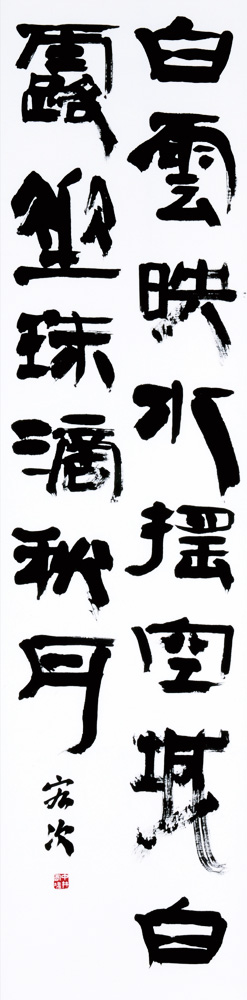 白雲映水搖空城白
露垂珠滴秋月